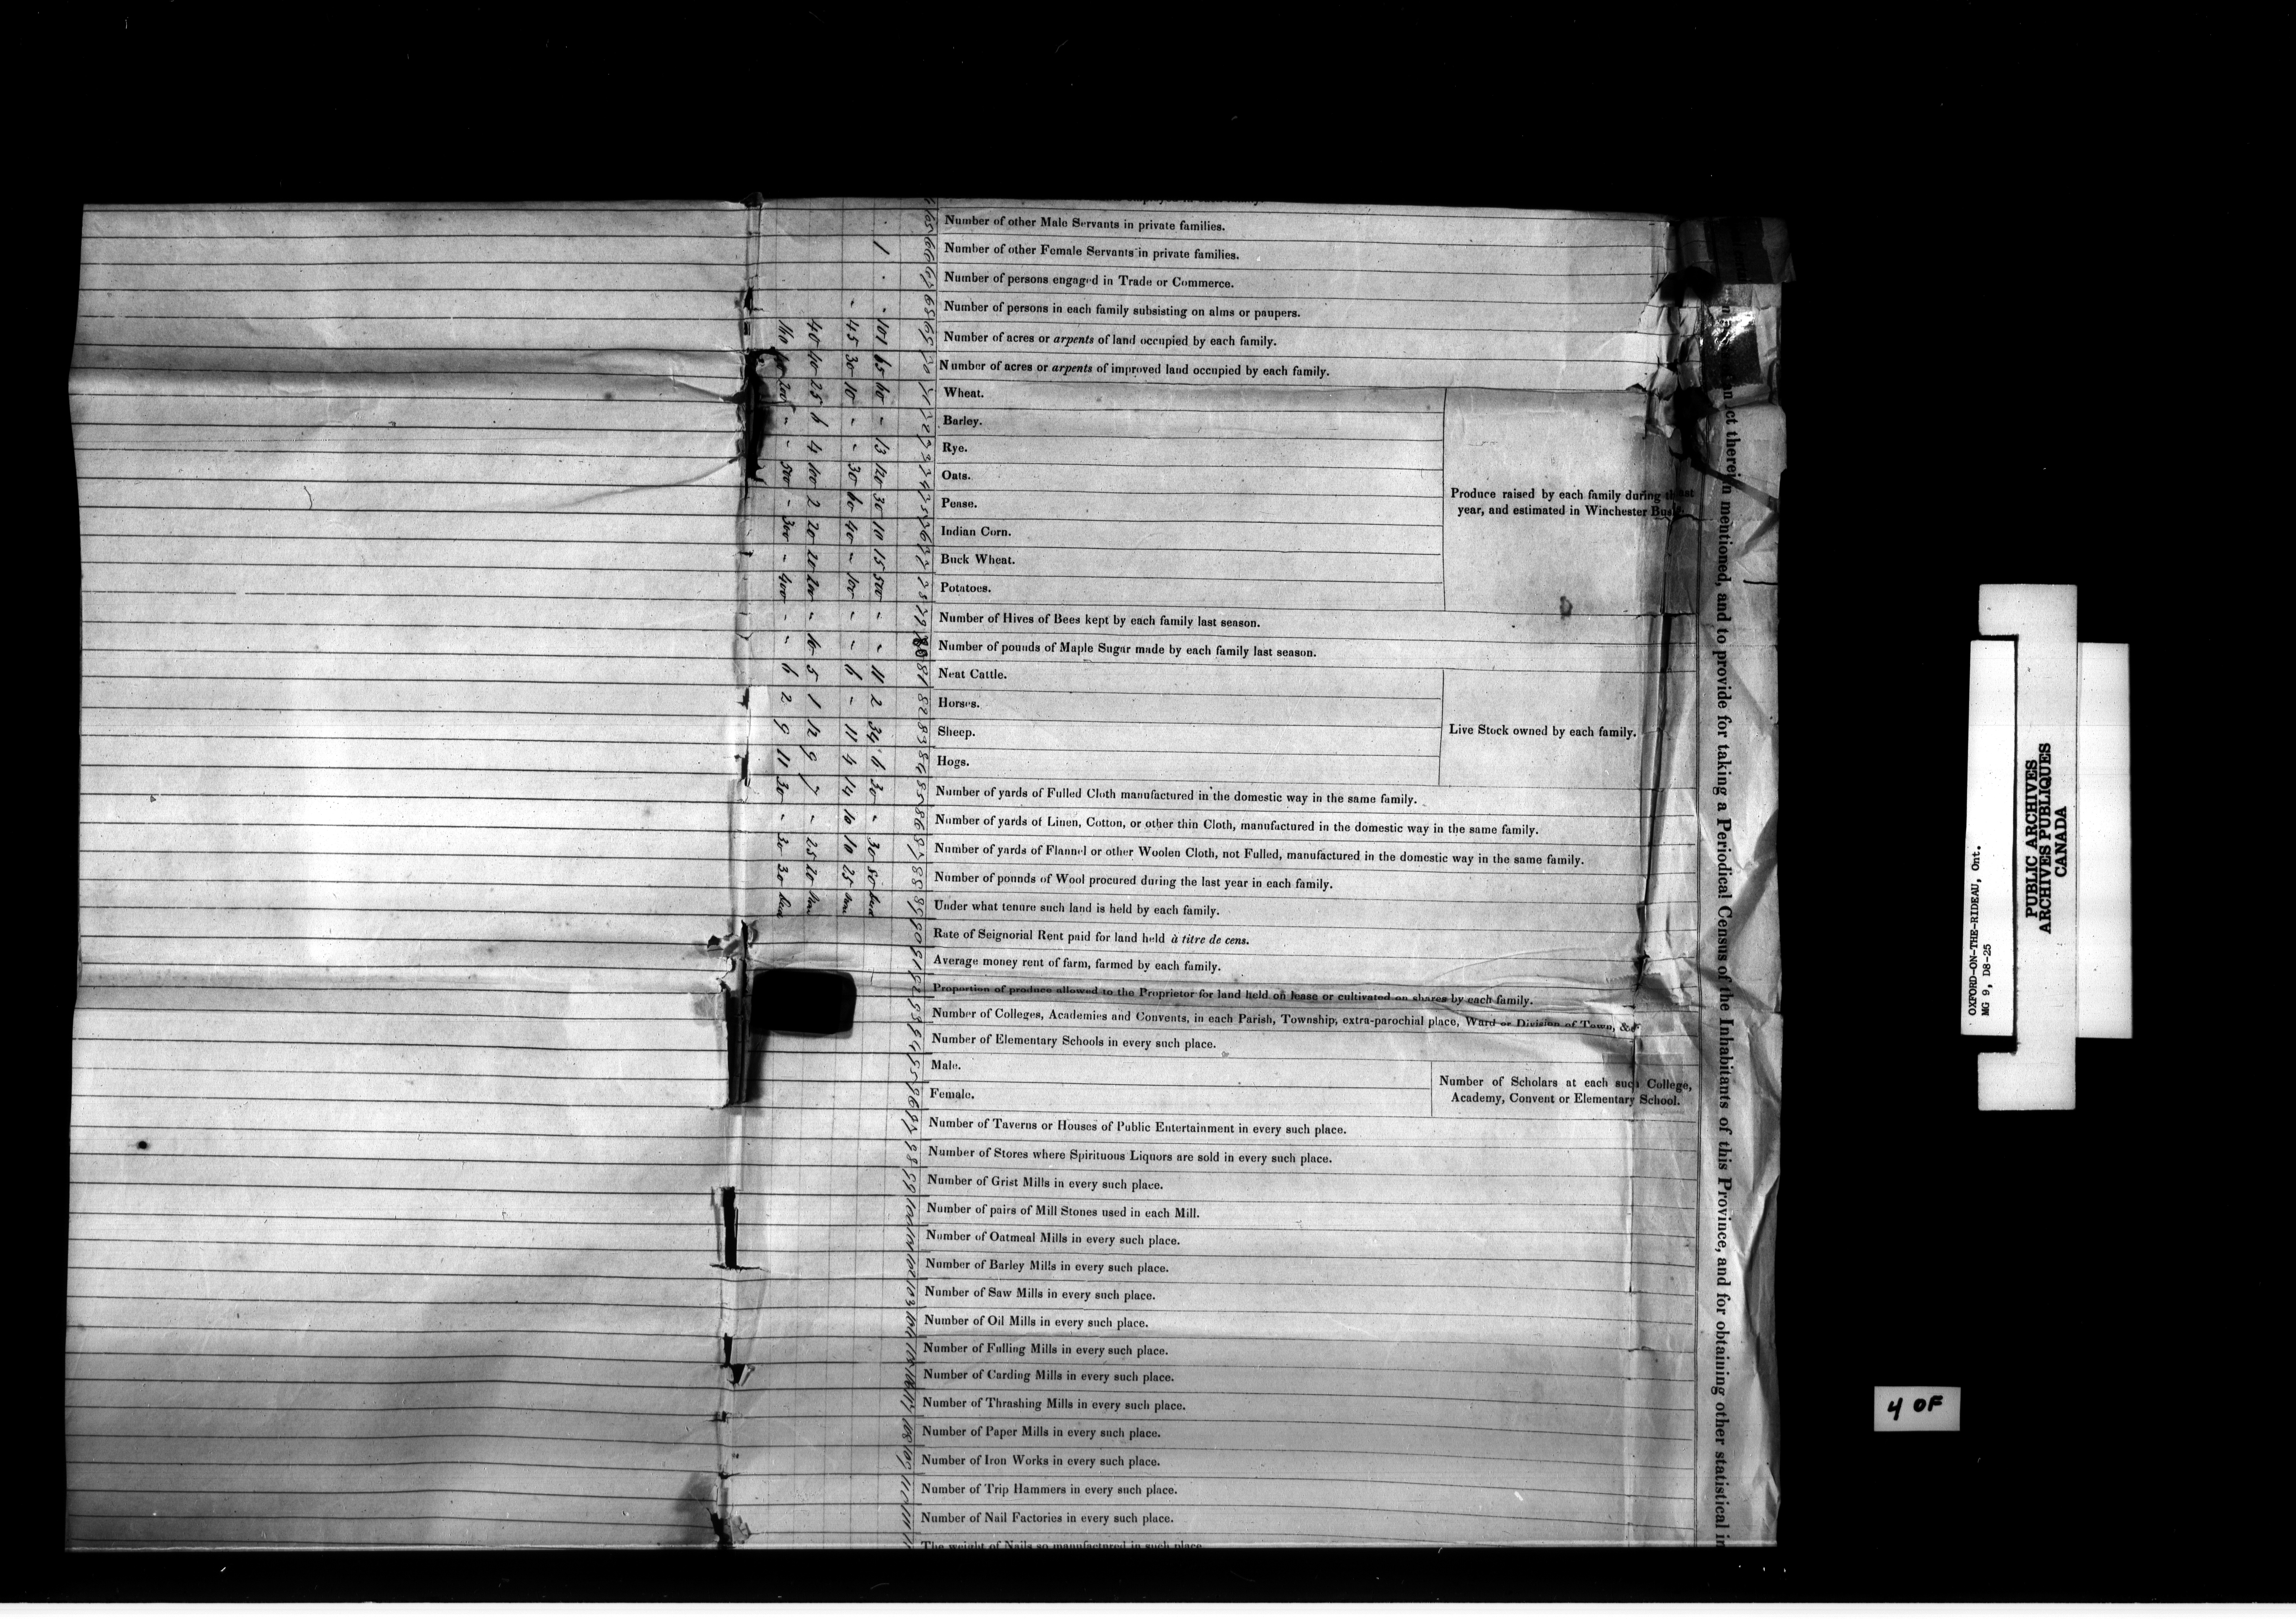 Number of other Male Servants in private families.
Number of other Female Servants in private families.
Number of persons engaged in Trade or Commerce.
Number of persons in each family subsisting on alms or paupers.
Number of acres or arpents of land occupied by each family.
Number of acres or arpents of improved land occupied by each family.
Wheat.
Barley.
Rye.
Oats.
Pease.
Indian Corn.
Buck Wheat.
Potatoes.
Produce raised by each family during
year, and estimated in Winchester
Number of Hives of Bees kept by each family last season.
Number of pounds of Maple Sugar made by each family last season.
Neat Cattle.
Horses.
Sheep.
Hogs.
Live Stock owned by each family.
Number of yards of Fulled Cloth manufactured in the domestic way in the same family.
Number of yards of Linen, Cotton, or other thin Cloth, manufactured in the domestic way in the same family.
Number of yards of Flannel or other Woolen Cloth, not Fulled, manufactured in the domestic way in the same family.
Number of pounds of Wool procured during the last year in each family.
Under what tenure such land is held by each family.
Rate of Seignorial Rent paid for land held à titre de cens.
Average money rent of farm, farmed by each family.
Proportion of produce allowed to the Proprietor for land held on lease or cultivated on shares by each family.
Number of Colleges, Academies and Convents, in each Parish, Township, extra-parochial place, Ward or Division of Town, &c
Number of Elementary Schools in every such place.
Male.
Female.
Number of Scholars at each such College,
Academy, Convent or Elementary School.
Number of Taverns or Houses of Public Entertainment in every such place.
Number of Stores where Spirituous Liquors are sold in every such place.
Number of Grist Mills in every such place.
Number of pairs of Mill Stones used in each Mill.
Number of Oatmeal Mills in every such place.
Number of Barley Mills in every such place.
Number of Saw Mills in every such place.
Number of Oil Mills in every such place.
Number of Fulling Mills in every such place.
Number of Carding Mills in every such place.
Number of Thrashing Mills in every such place.
Number of Paper Mills in every such place.
Number of Iron Works in every such place.
Number of Trip Hammers in every such place.
Number of Nail Factories in every such place.
The weight of Nails so manufactured in such place
1 101 65 60 13 120 30 10 15 500 11 2 34 6 30 30 80
45 30 10 30 60 40 100 6 11 4 14 10 10 25
40 40 25 6 4 100 2 20 20 200 5 1 12 9 7 25 20
200 500 300 400 6 2 9 11 30 30 30
therein mentioned, and to provide for taking a Periodical Census of the Inhabitants of this Province, and for obtaining other statistical in
OXFORD-ON-THE-RIDEAU, Ont.
MG 9, D8-25
PUBLIC ARCHIVES
ARCHIVES PUBLIQUES
CANADA
4 OF